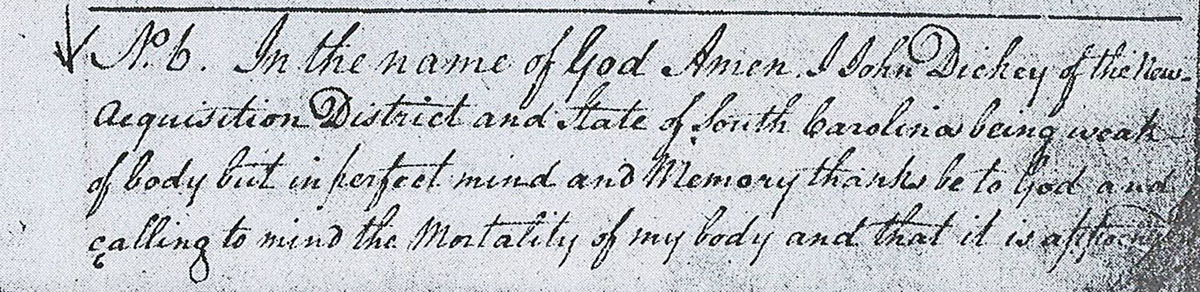 No. 6. In the name of God Amen. I John Dickey of the New-
Acquisition District and State of South Carolina being weak
of body but in perfect mind and Memory thanks be to God and
calling to mind the Mortality of my body and that it is